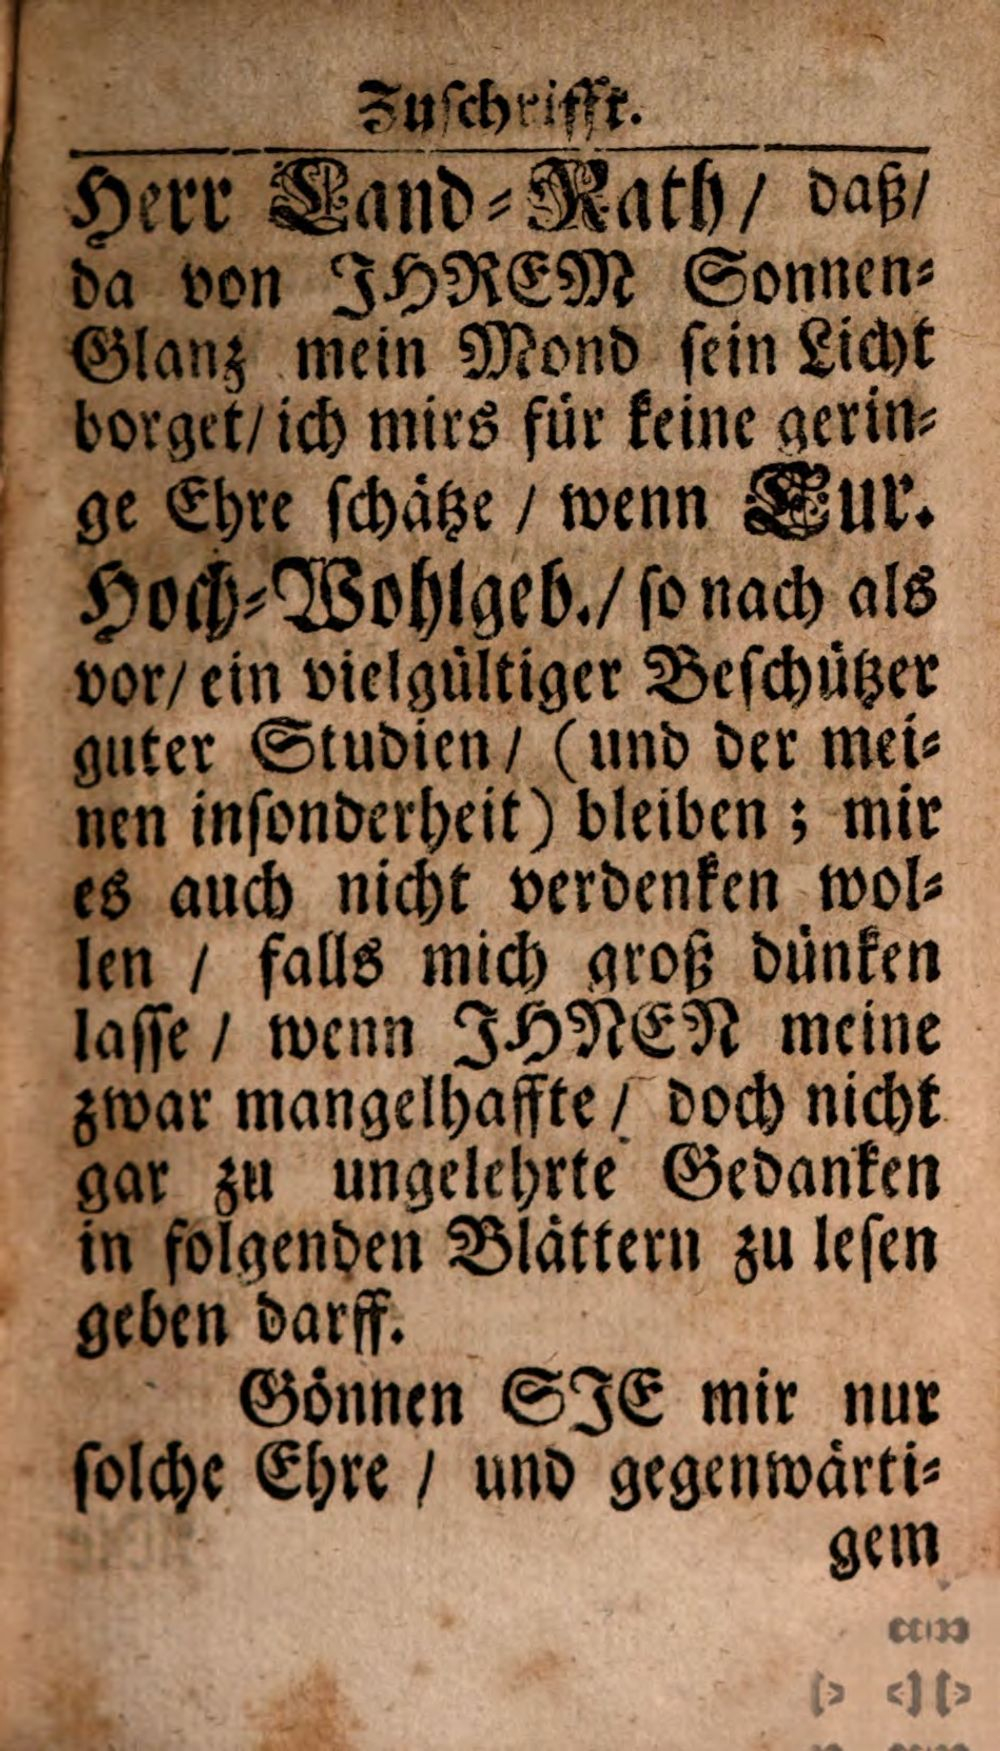 Zuschrifft.
Herr Land-Rath/ daß/
da von JHREM Sonnen-
Glanz mein Mond sein Licht
borget/ ich mirs für keine gerin-
ge Ehre schätze / wenn Eur.
Hoch-Wohlgeb./ so nach als
vor/ ein vielgültiger Beschützer
guter Studien/ (und der mei-
nen insonderheit) bleiben ; mir
es auch nicht verdenken wol-
len / falls mich groß dünken
lasse / wenn JHNEN meine
zwar mangelhaffte / doch nicht
gar zu ungelehrte Gedanken
in folgenden Blättern zu lesen
geben darff.
Gönnen SJE mir nur
solche Ehre / und gegenwärti-
gem